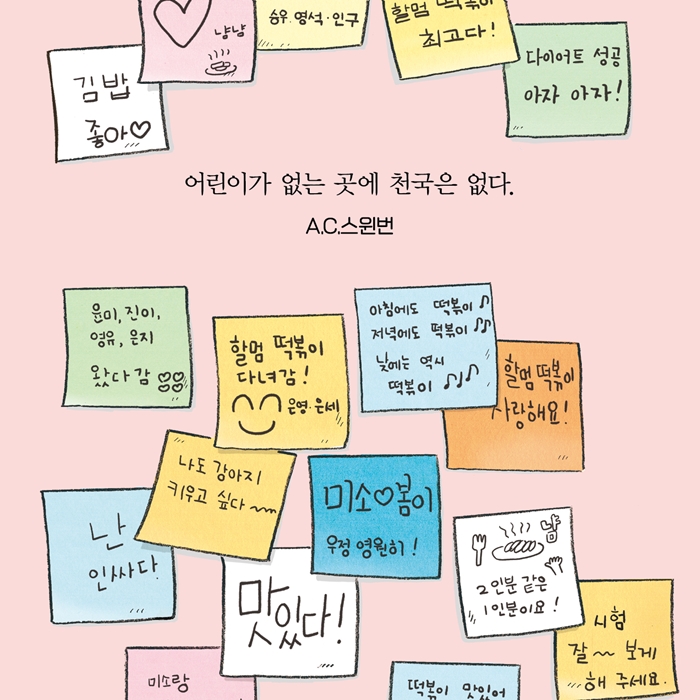 냠냠
승우·영석·인구
할멈 떡볶이
최고다!
다이어트 성공
아자 아자!
김밥
좋아♡
어린이가 없는 곳에 천국은 없다.
A.C.스윈번
윤미, 진이,
영유, 은지
왔다 감
할멈 떡볶이
다녀감!
은영·은세
아침에도 떡볶이♪
저녁에도 떡볶이♪♪
낮에는 역시
떡볶이 ♪♪♪
할멈 떡볶이
사랑해요!
나도 강아지
키우고 싶다~~
미소♡봄이
우정 영원히!
난
인싸다
맛있다!
냠
2인분 같은
1인분이요!
시험
잘~ 보게
해 주세요.
미소랑
떡볶이 맛있어